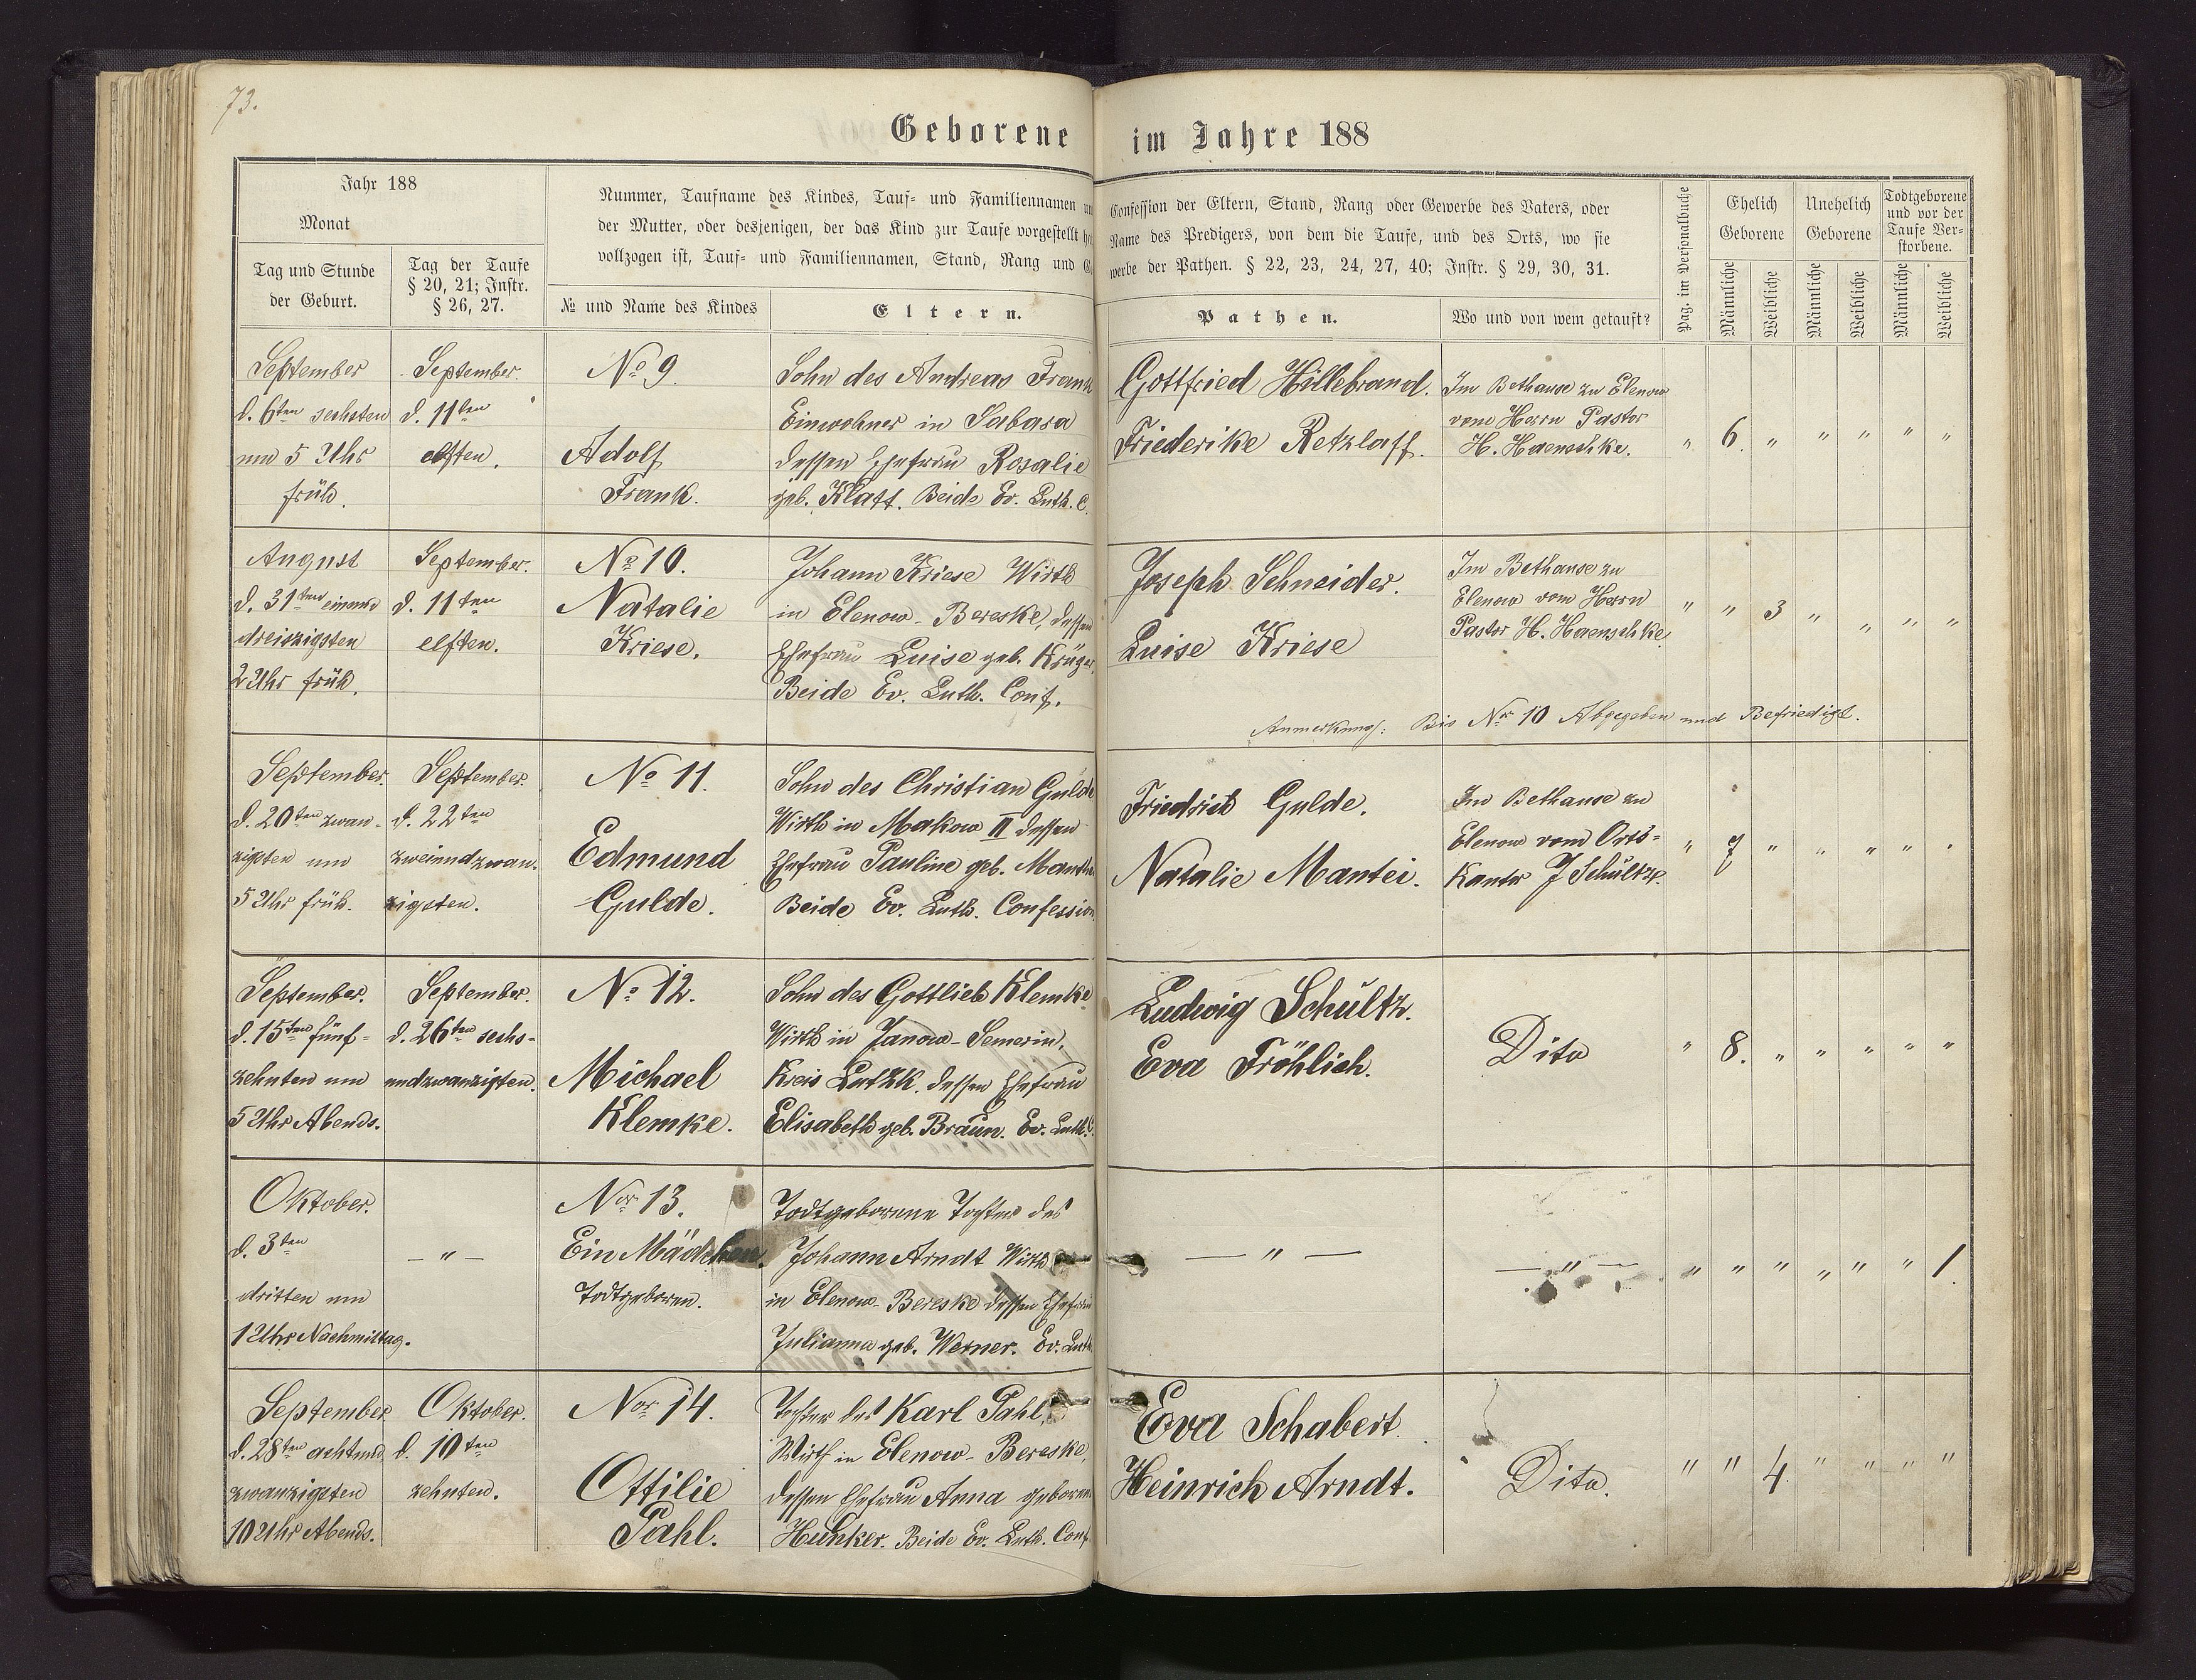 73.
Geborene im Jahre 188
Jahr 188
Monat
Tag und Stunde
der Geburt.
Tag der Taufe
§ 20, 21; Instr.
§ 26, 27.
Nummer, Taufname des Kindes, Tauf- und Familiennamen
der Mutter, oder desjenigen, der das Kind zur Taufe vorgestellt
vollzogen ist, Tauf- und Familiennamen, Stand, Rang und
№ und Name des Kindes
Eltern.
Confession der Eltern, Stand, Rang oder Gewerbe des Vaters, oder
Name des Predigers, von dem die Taufe, und des Orts, wo sie
werbe der Pathen. § 22, 23, 24, 27, 40; Instr. § 29, 30, 31.
Pathen.
Wo und von wem getauft?
Pag. im Personalbuche
Ehelich
Geborene
Unehelich
Geborene
Todtgeborene
und vor der
Taufe Ver-
storbene.
Männliche
Weibliche
Männliche
Weibliche
Männliche
Weibliche
September
d. 6ten sechsten
um 5 Uhr
früh.
September
d. 11ten
elften.
No 9.
Adolf
Frank.
Sohn des Andreas Frank
Einwohner in Sabara
dessen Ehefrau Rosalie
geb. Klatt. Beide Ev. Luth. C.
Gottfried Hillebrand.
Friederike Retzlaff.
Im Bethause zu Elenow
vom Herrn Pastor
H. Haenschke.
" 6. " " " " "
August
d. 31ten einund
dreiszigsten
2 Uhr früh.
September.
d. 11ten
elften.
No 10.
Natalie
Kriese.
Johann Kriese Wirth
in Elenow-Bereske, dessen
Ehefrau Luise geb. Krüger,
Beide Ev. Luth. Conf.
Joseph Schneider.
Luise Kriese
Im Bethause zu
Elenow vom Herrn
Pastor H. Haenschke
" " 3 " " " "
Anmerkung: Bis Nr 10 Abgegeben und Befriedigt.
September.
d. 20ten zwan-
zigsten um
5 Uhr früh.
September.
d. 22ten
zweiundzwan-
zigsten.
No 11.
Edmund
Gulde.
Sohn des Christian Gulde
Wirth in Makow II dessen
Ehefrau Pauline geb.
Beide Ev. Luth. Confession
Friedrich Gulde.
Natalie Mantei.
Im Bethause zu
Elenow vom Orts-
Kantor J Schültz.
" 7 " " " " "
September.
d. 15ten fünf-
zehnten um
5 Uhr Abends.
September.
d. 26ten sechs-
undzwanzigsten.
No 12.
Michael
Klemke.
Sohn des Gottlieb Klemke
Wirth in Janow-Semerin,
Kreis Lutzk. dessen Ehefrau
Elisabeth geb. Braun. Ev. Luth. C.
Ludwig Schültz.
Eva Fröhlich.
Dito
" 8. " " " " "
Oktober.
d. 3ten
dritten um
1 Uhr Nachmittag.
— " —
Nor 13.
Ein Mädchen.
todtgeboren.
Todtgeborene Tochter des
Johann Arndt Wirth
in Elenow-Bereske dessen Ehefrau
Julianna geb. Werner. Ev. Luth
— " —
— " —
" " " " " " 1.
September
d. 28ten achtund
zwanzigsten
10 Uhr Abends.
Oktober.
d. 10ten
zehnten.
Nor 14.
Ottilie
Pahl.
Tochter des Karl Pahl,
Wirth in Elenow-Bereske,
dessen Ehefrau Anna geboren
Hunker. Beide Ev. Luth. Conf.
Eva Schabert.
Heinrich Arndt.
Dito.
" " 4. " " " "